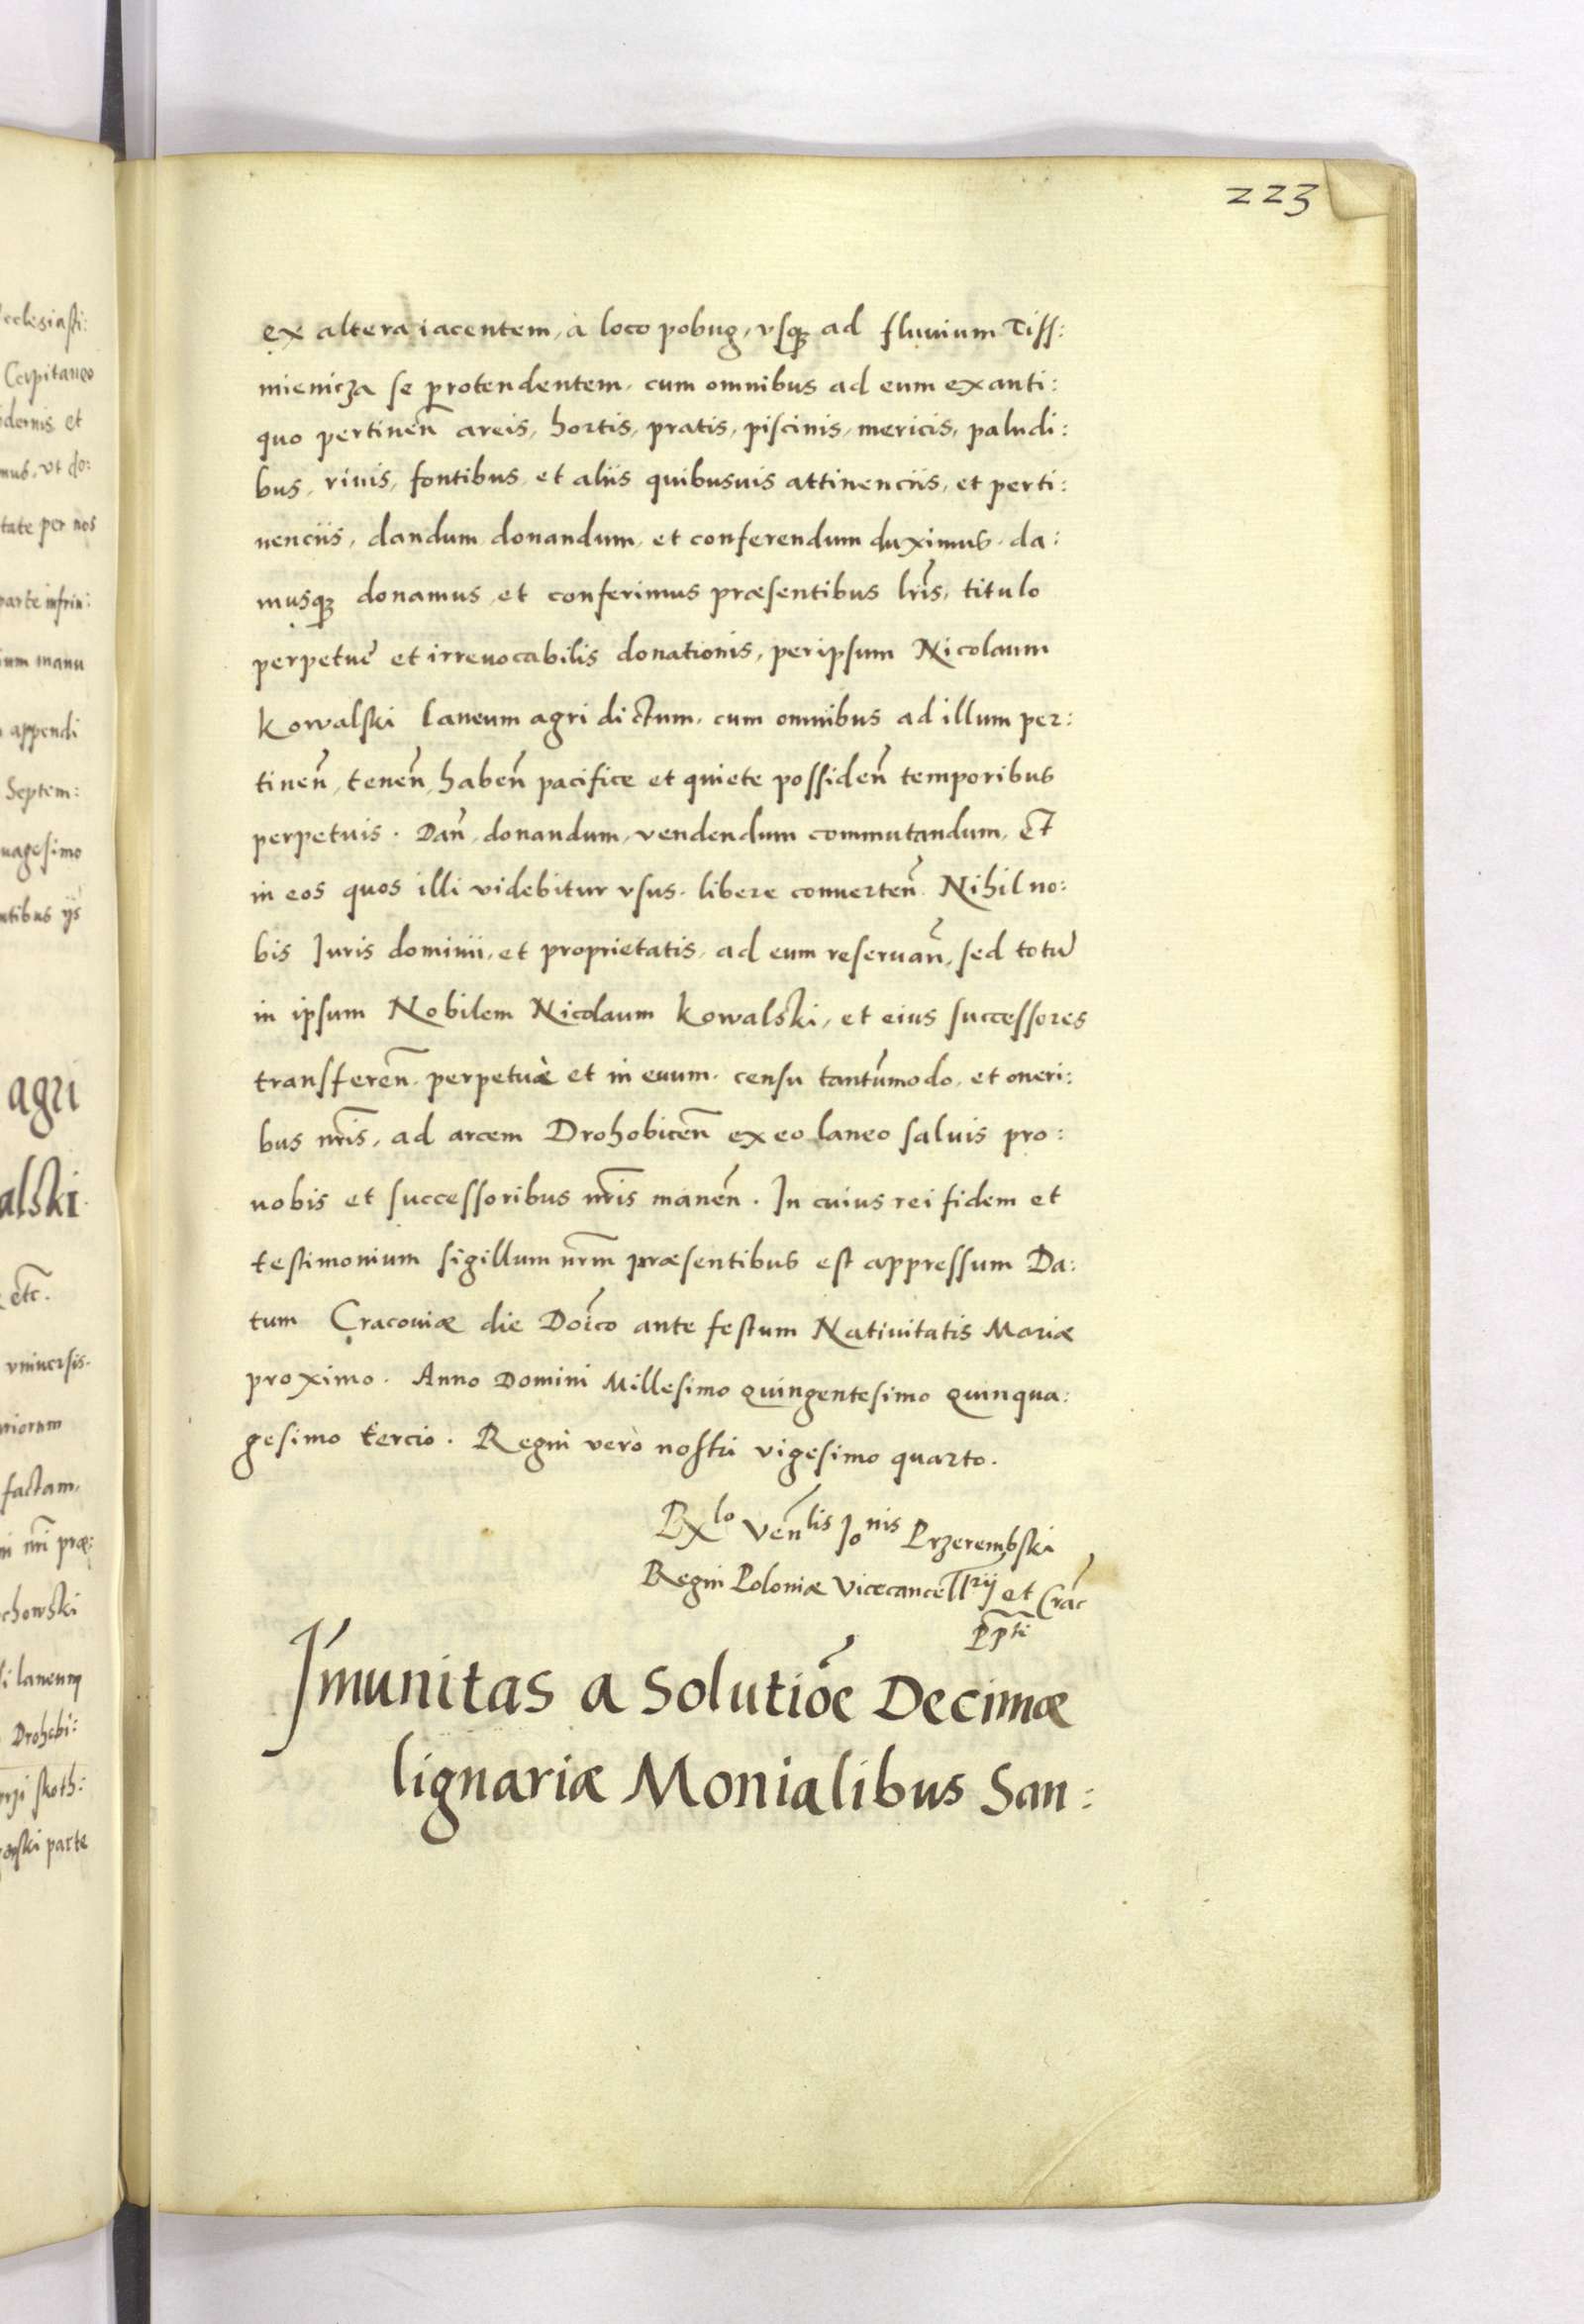 223
ex altera iacentem, à loco pobug, vsq3 ad fluuium Tiss:
mienicza se protendentem, cum omnibus ad eum ex anti:
quo pertineñ areis, hortis, pratis, piscinis, mericis, paludi:
bus, riuis, fontibus, et aliis quibusuis attinenciis, et perti:
nenciis, dandum donandum, et conferendum duximus. da:
musq3 donamus, et conferimus præsentibus lr̃is, titulo
perpetue et irreuocabilis donationis, per ipsum Nicolaum
Kowalski laneum agri dictum, cum omnibus ad illum per:
tineñ, teneñ, habeñ pacifice et quiete possideñ temporibus
perpetuis. Dañ, donandum, vendendum commutandum, Et
in eos quos illi videbitur vsus, libere conuerteñ. Nihil no:
bis Iuris dominii, et proprietatis, ad eum reseruañ, sed totũ
in ipsum Nobilem Nicolaum Kowalski, et eius successores
transfereñ. perpetuè et in euum. censu tantũmodo, et oneri:
bus nr̃is, ad arcem Drohobiceñ ex eo laneo saluis pro:
nobis et successoribus nr̃is maneñ. In cuius rei fidem et
testimonium sigillum nr̃m præsentibus est appressum Da:
tum Cracouiæ die Doĩco ante festum Natiuitatis Mariæ
proximo. Anno Domini Millesimo quingentesimo quinqua:
gesimo tercio. Regni verò nostri vigesimo quarto.
Rxlo Veñlis Jonis Przerembski
Regni Poloniæ Vicecancellrij et Crac̃
Pp̃ti
Im̃unitas a Solutiõe Decimæ
lignariæ Monialibus San:
ecclesiasti:
Capitaneo
idernis et
mus, vt do:
tate per nos
parte infrin:
ium manu
appendi
Septem:
uagesimo
ntibus ijs
agri
alski
etc̃.
vniuersis.
factam,
ni nr̃i præ:
chowski
i laneum
Drohobi:
skoth:
parte